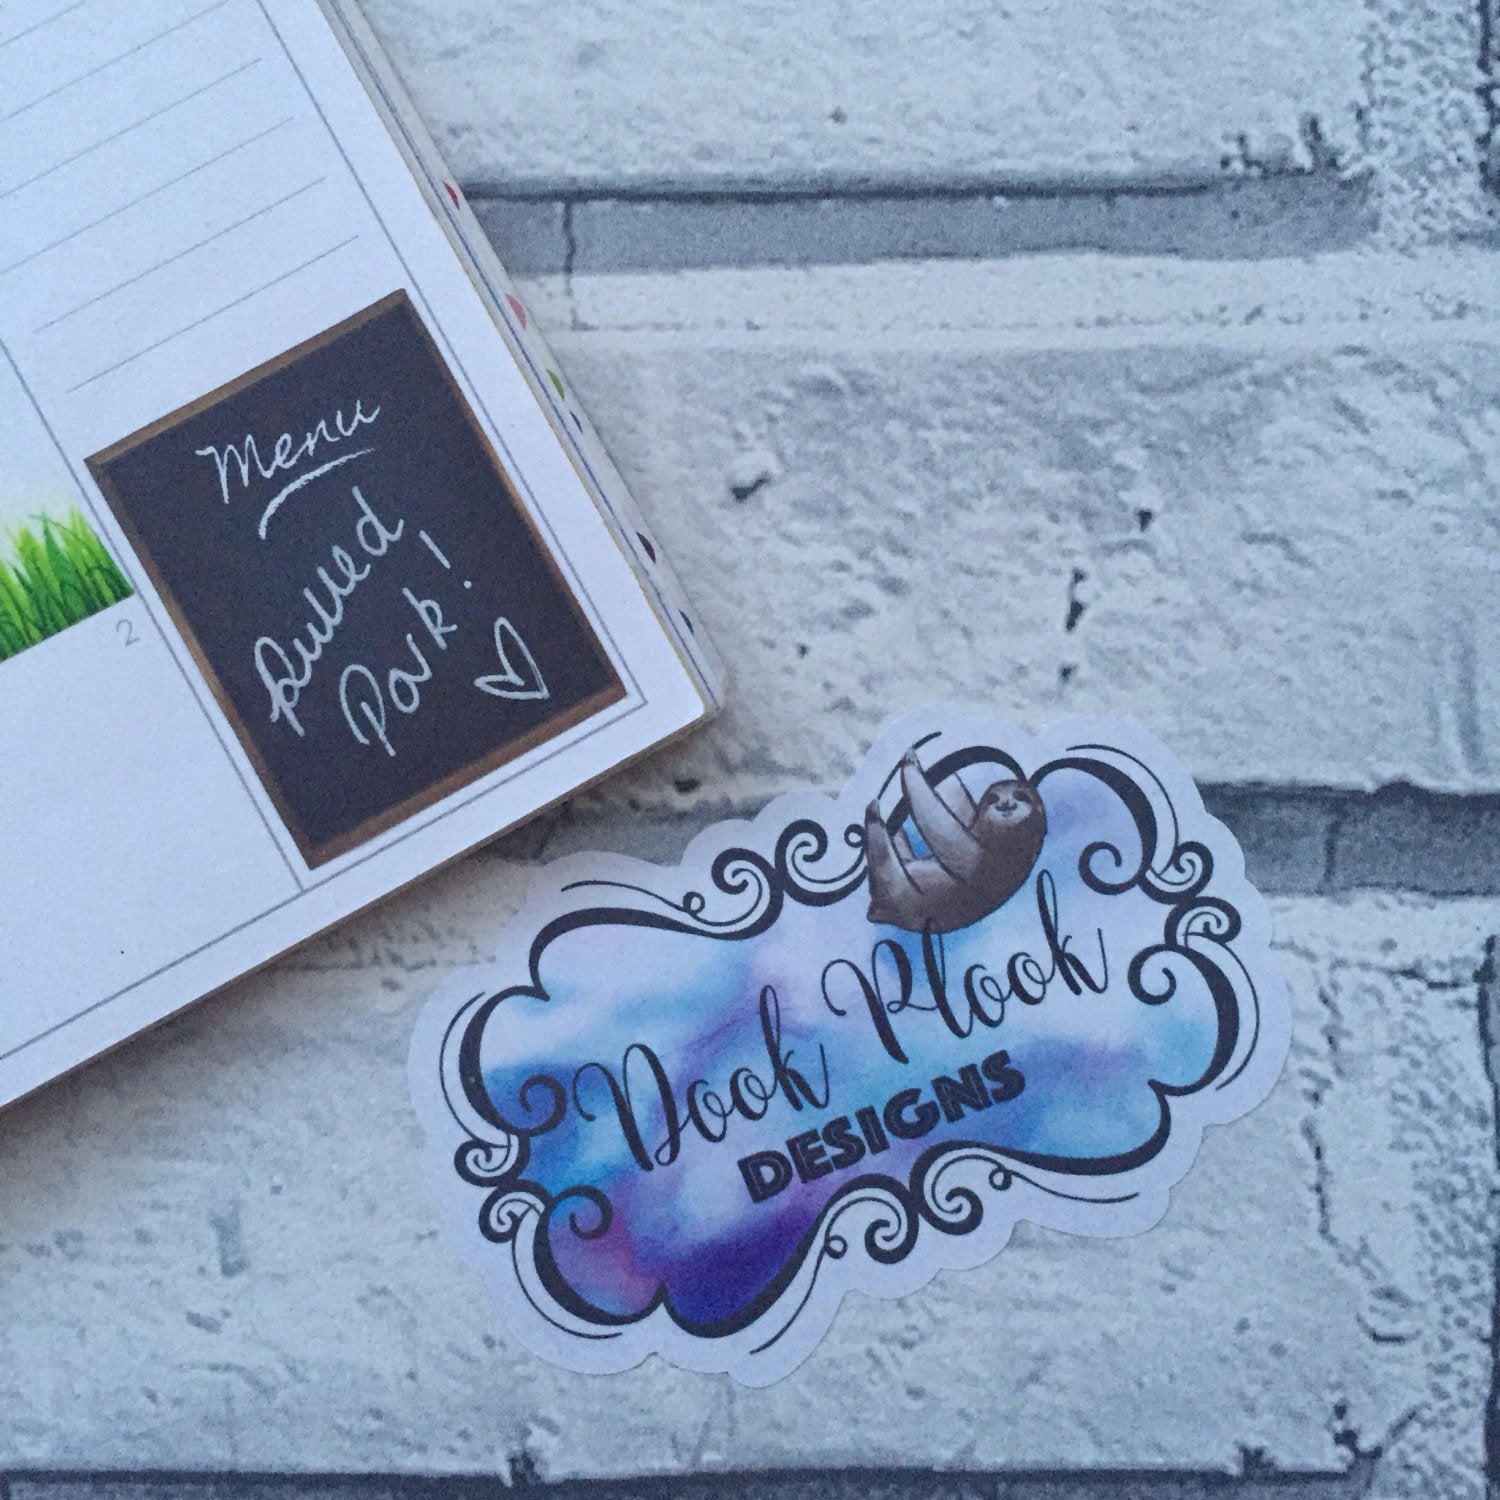 Menu
Pulled
Pork!
2
Dook Plook
DESIGNS